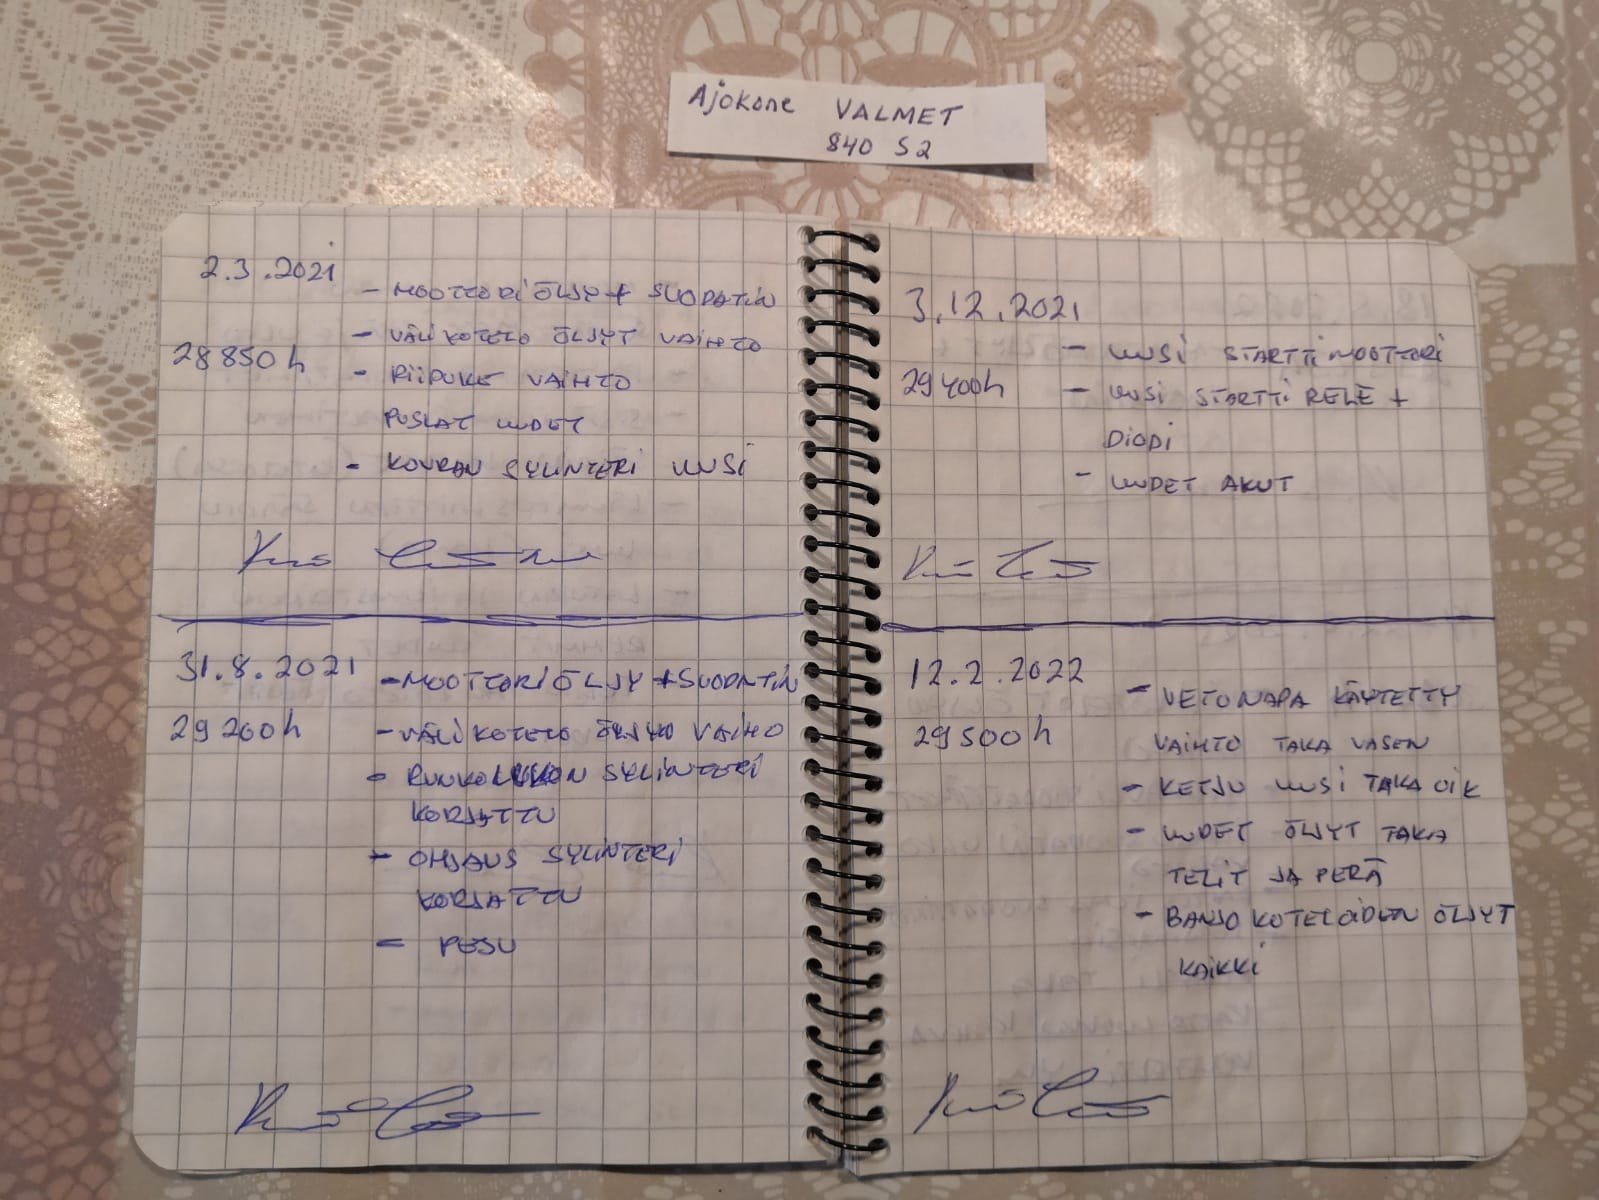 Ajokone VALMET
840 S2
2.3.2021
- MOOTTORI ÖLJY + SUODATIN
28850h
- VÄLIKOTELO ÖLJYT VAIHTO
- RIIPUKE VAIHTO
PUSLAT UUDET
- KOURAN SYLINTERI UUSI
31.8.2021
- MOOTTORI ÖLJY + SUODATIN
29200h
- VÄLIKOTELO VAIHO
- SYLINTERI
KORJATTU
- OHJAUS SYLINTERI
KORJATTU
- PESU
3.12.2021
- UUSI STARTTIMOOTTORI
29400h
- UUSI STARTTI RELE +
DIODI
- UUDET AKUT
12.2.2022
- VETONAPA KÄYTETTY
29500h
VAIHTO TAKA VASEN
- KETJU UUSI TAKA OIK
- UUDET ÖLJYT TAKA
TELIT JA PERÄ
- BANJO KOTELOIDEN ÖLJYT
KAIKKI